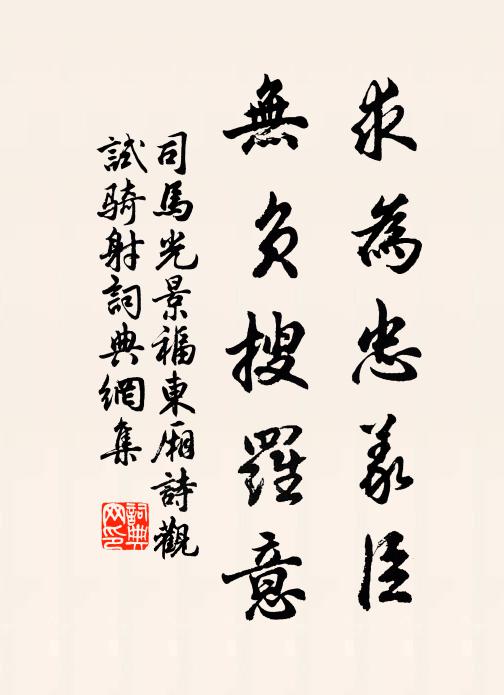 求為忠義臣
無負搜羅意
司馬光景福東廂詩觀
試骑射詞典網集
詞典
网印